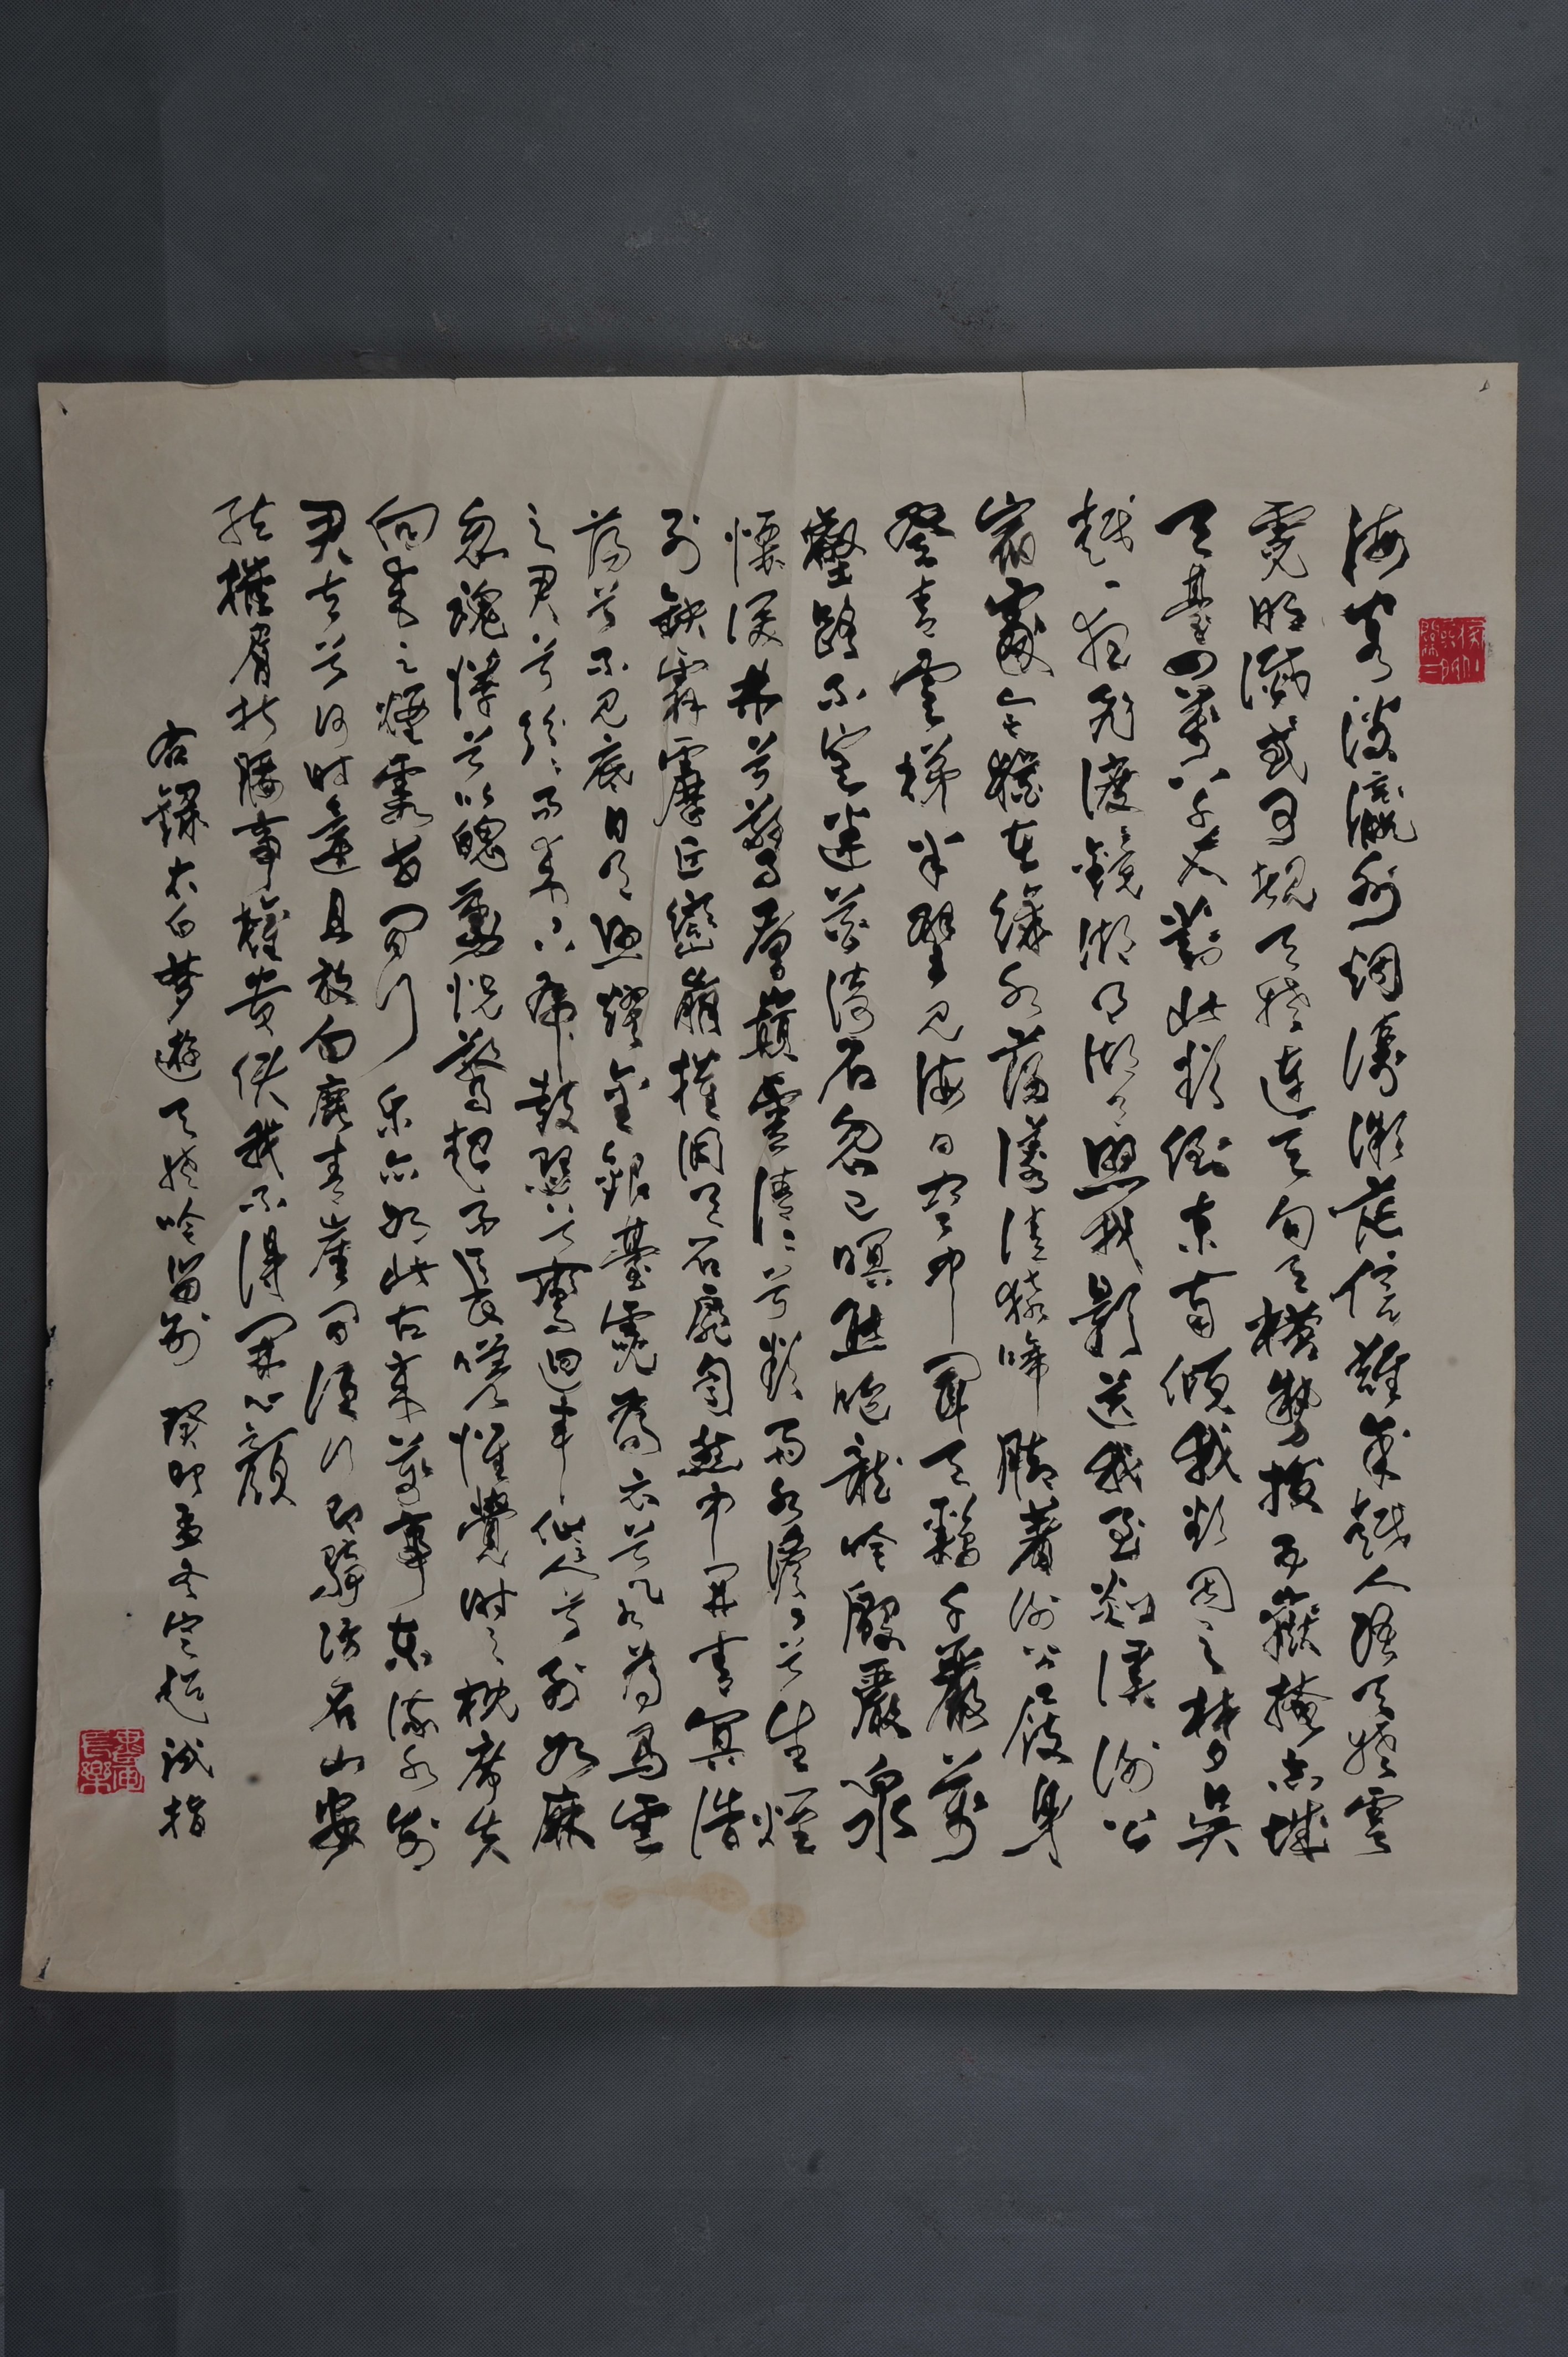 海客談瀛洲煙濤微茫信難求越人語天姥雲
霓明滅或可覩天姥連天向天橫勢拔五嶽掩赤城
天臺四萬八千丈對此欲倒東南傾我欲因之夢吳
越一夜飛渡鏡湖月湖月照我影送我至剡溪謝公
宿處今尚在綠水蕩漾清猿啼腳著謝公屐身
登青雲梯半壁見海日空中聞天雞千巖萬
壑路不定迷花倚石忽已暝熊咆龍吟殷巖泉
慄深林兮驚層巔雲清清兮欲雨水澹澹兮生煙
列缺霹靂丘巒崩摧洞天石扉訇然中開青冥浩
蕩兮不見底日月照耀金銀臺霓為衣兮風為馬雲
之君兮紛紛而來下虎鼓瑟兮鸞回車仙人兮列如麻
忽魂悸以魄動怳驚起而長嗟惟覺時之枕席失
向來之煙霞世間行樂亦如此古來萬事東流水別
君去兮何時還且放白鹿青崖間須行即騎訪名山安
能摧眉折腰事權貴使我不得開心顏
右錄太白夢遊天姥吟留別 癸卯孟冬
長樂